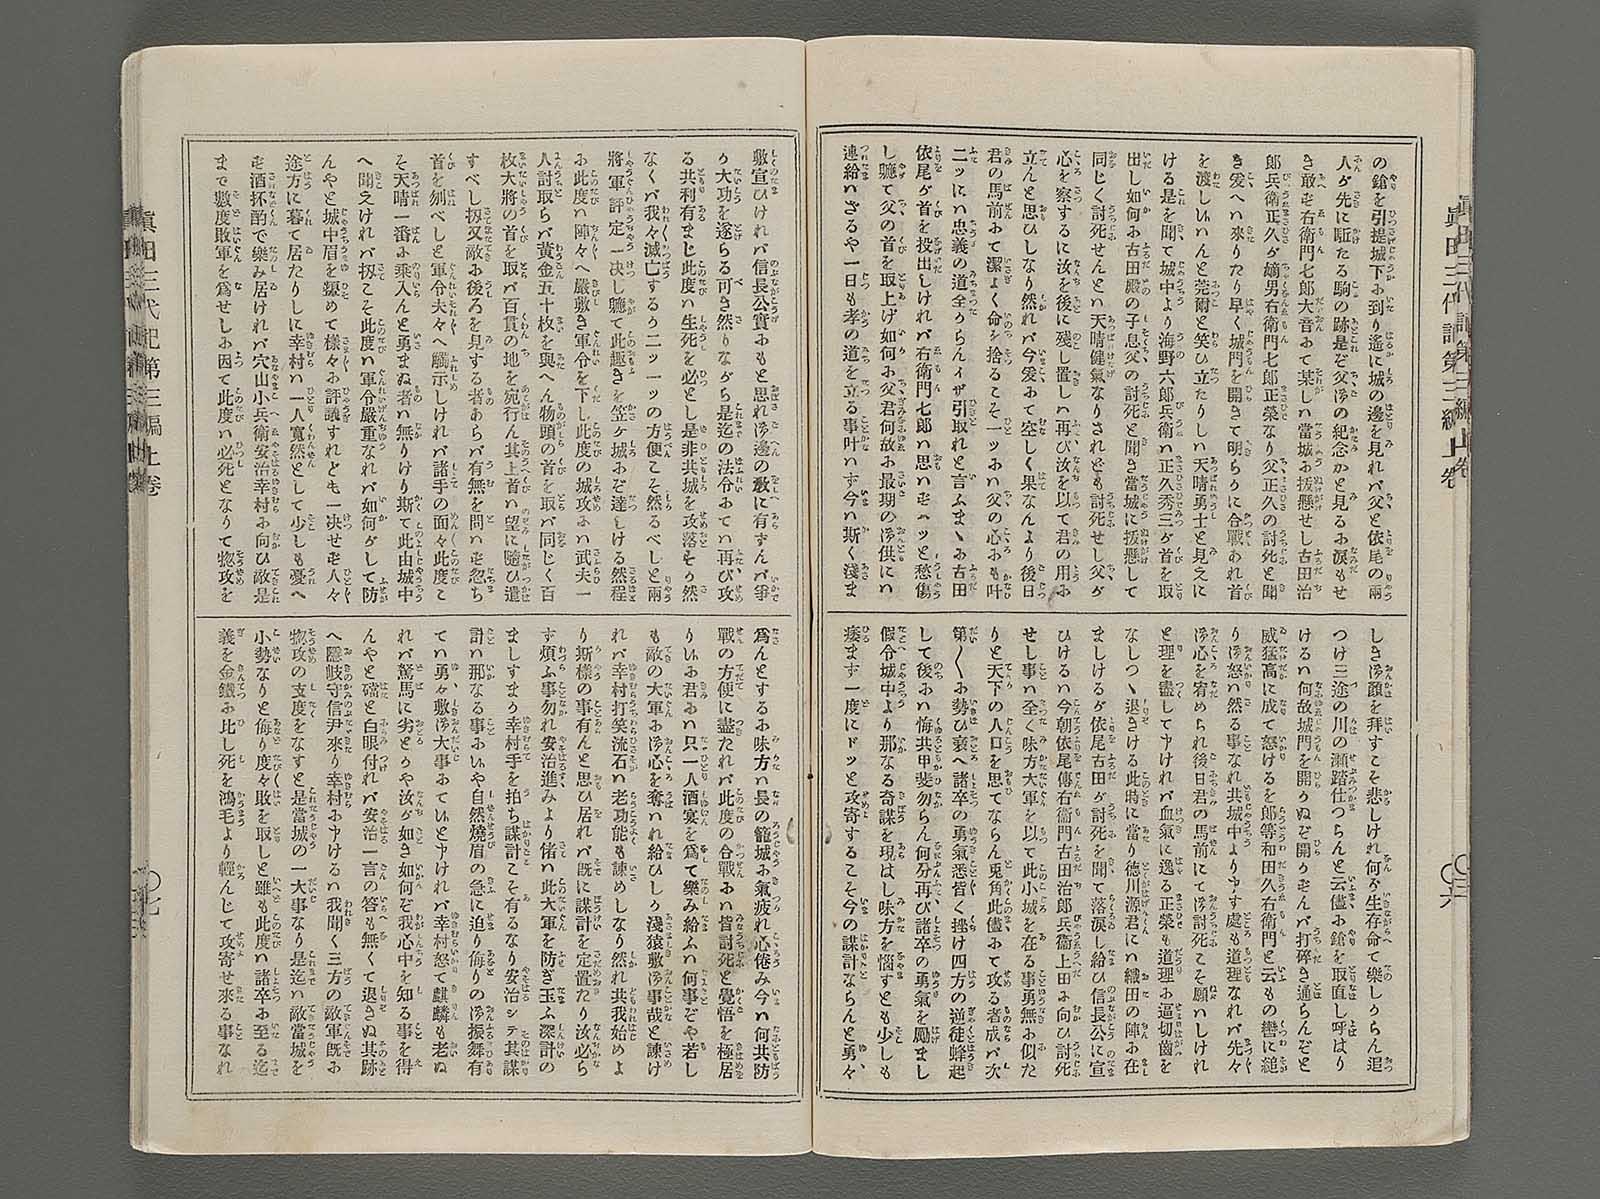 眞田三代記第三編上卷
の鎗を引提城下に到り遙に城の邊を見れバ父と依尾の兩
人が先に駈たる駒の跡是ぞ父御の紀念かと見るに涙もせ
き敢ず右衛門七郎大音にて某しハ當城に援懸せし古田治
郎兵衛正久が嫡男右衛門七郎正榮なり父正久の討死と聞
き爰へハ來りたり早く城門を開きて明らかに合戰あれ首
を渡しハんと莞爾と笑ひ立たりしハ天晴勇士と見えに
ける是を聞て城中より海野六郎兵衛ハ正久秀三が首を取
出し如何に古田殿の子息父の討死と聞き當城に援懸して
同じく討死せんとハ天晴健氣なりされども討死せし父が
心を察するに汝を後に殘し置しハ再び汝を以て君の用に
立んと思ひしなり然れバ今爰にて空しく果なんより後日
君の馬前にて潔よく命を捨るこそ一ツにハ父の心にも叶
二ツにハ忠義の道全からんイザ引取れと言ふまゝに古田
依尾が首を投出しけれバ右衛門七郎ハ思ハずハツと愁傷
し軈て父の首を取上げ如何に父君何故に最期の御供にハ
連給ハざるや一日も孝の道を立る事叶ハず今ハ斯く淺ま
しき御顔を拜すこそ悲しけれ何ぞ生存命て樂しからん追
つけ三途の川の瀬踏仕つらんと云儘に鎗を取直し呼はり
けるハ何故城門を開かぬぞ開かずんバ打碎き通らんぞと
威猛高に成て怒けるを郎等和田久右衛門と云もの轡に縋
り御怒ハ然る事なれ共城中より申す處も道理なれバ先々
御心を宥められ後日君の馬前にて御討死こそ願ハしけれ
と理を盡して申けれバ血氣に逸る正榮も道理に逼切齒を
なしつゝ退きける此時に當り徳川源君にハ織田の陣に在
ましけるが依尾古田が討死を聞て落涙し給ひ信長公に宣
ひけるハ今朝依尾傳右衛門古田治郎兵衞上田に向ひ討死
せし事ハ全く味方大軍を以て此小城を在る事勇無に似た
りと天下の人口を思てならん兎角此儘にて攻る者成バ次
第〱に勢ひ衰へ諸卒の勇氣悉皆く挫け四方の逆徒蜂起
して後にハ悔共甲斐勿らん何分再び諸卒の勇氣を勵まし
假令城中より那なる奇謀を現はし味方を惱すとも少しも
痿まず一度にドッと攻寄するこそ今の謀計ならんと勇々
敷宣ひけれバ信長公實にもと思れ御邊の教に有ずんバ爭
か大功を遂らる可き然りながら是迄の法令にてハ再び攻
る共利有まじ此度ハ生死を必とし是非共城を攻落そか然
なくバ我々滅亡するか二ツ一ツの方便こそ然るべしと兩
將軍評定一决し軈て此趣きを笠ヶ城にぞ達しける然程
に此度ハ陣々へ嚴敷き軍令を下し此度の城攻にハ武夫一
人討取らバ黄金五十枚を與へん物頭の首を取バ同じく百
枚大將の首を取バ百貫の地を宛行ん其上首ハ望に隨ひ遣
すべし扨又敵に後ろを見する者あらバ有無を問ハず忽ち
首を刎べしと軍令夫々へ觸示しけれバ諸手の面々此度こ
そ天晴一番に乘入んと勇まぬ者ハ無りけり斯て此由城中
へ聞えけれバ扨こそ此度ハ軍令嚴重なれバ如何がして防
んやと城中眉を顰めて樣々に評議すれども一决せず人々
途方に暮て居たりしに幸村ハ一人寬然として少しも憂へ
ず酒抔酌で樂み居けれバ穴山小兵衛安治幸村に向ひ敵是
まで數度敗軍を爲せしに因て此度ハ必死となりて惣攻を
爲んとするに味方ハ長の籠城に氣疲れ心倦み今ハ何共防
戰の方便に盡たれバ此度の合戰にハ皆討死と覺悟を極居
りハに君にハ只一人酒宴を爲て樂み給ふハ何事ぞや若し
も敵の大軍に御心を奪ハれ給ひしか淺猿敷御事哉と諫け
れバ幸村打笑流石ハ老功能も諫めしなり然れ共我始めよ
り斯樣の事有んと思ひ居れバ既に謀計を定置たり汝必ら
ず煩ふ事勿れ安治進みより偖ハ此大軍を防ぎ玉ふ深計の
ましすまか幸村手を拍ち謀計こそ有るなり安治シテ其謀
計ハ那なる事にハや自然燒眉の急に迫り侮りの御振舞有
てハ勇々敷御大事にてハと申けれバ幸村怒て麒麟も老ぬ
れバ驚馬に劣とかや汝が如き如何ぞ我心中を知る事を得
んやと礑と白眼付れバ安治一言の答も無くて退きぬ其跡
へ隱岐守信尹來り幸村に申けるハ我聞く三方の敵軍既に
惣攻の支度をなすと是當城の一大事なり是迄ハ敵當城を
小勢なりと侮り度々敗を取しと雖も此度ハ諸卒に至る迄
義を金鐵に比し死を鴻毛より輕んじて攻寄せ來る事なれ
眞田三代記第三編上卷